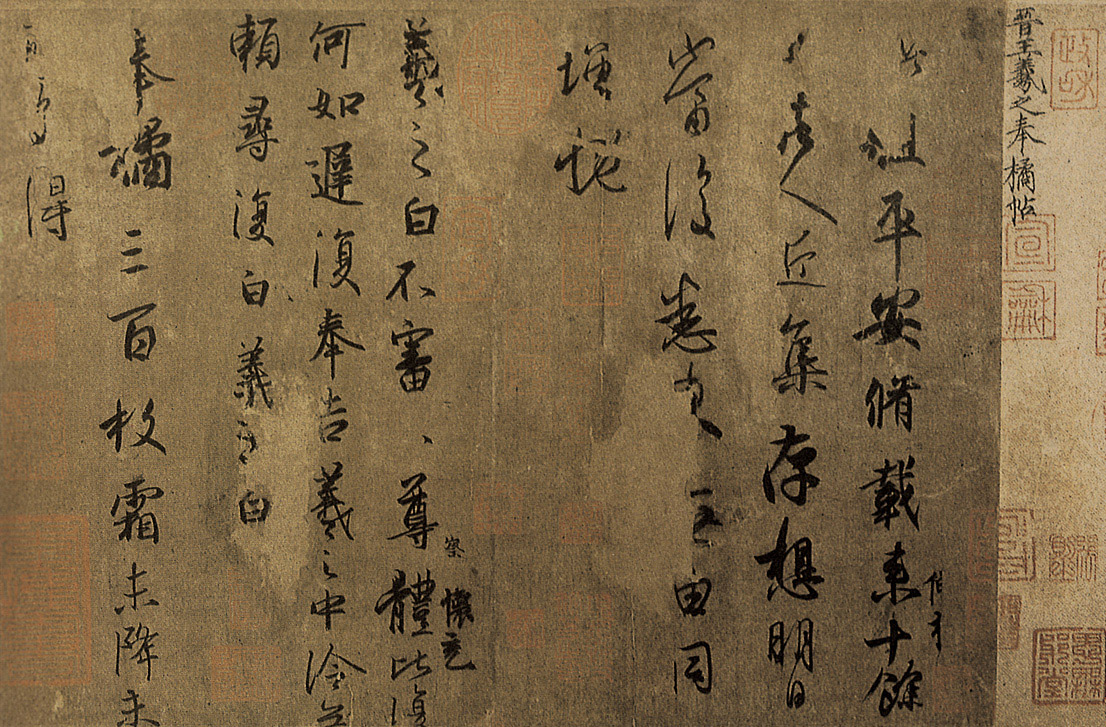 晉王羲之奉橘帖
此粗平安脩載來十餘
日諸人近集存想明日
當復悉來无由同
增慨
羲之白不審、尊體比復
察
懷充
何如遲復奉告羲之中冷無
賴尋復白羲之白
奉橘三百枚霜未降未
可多得